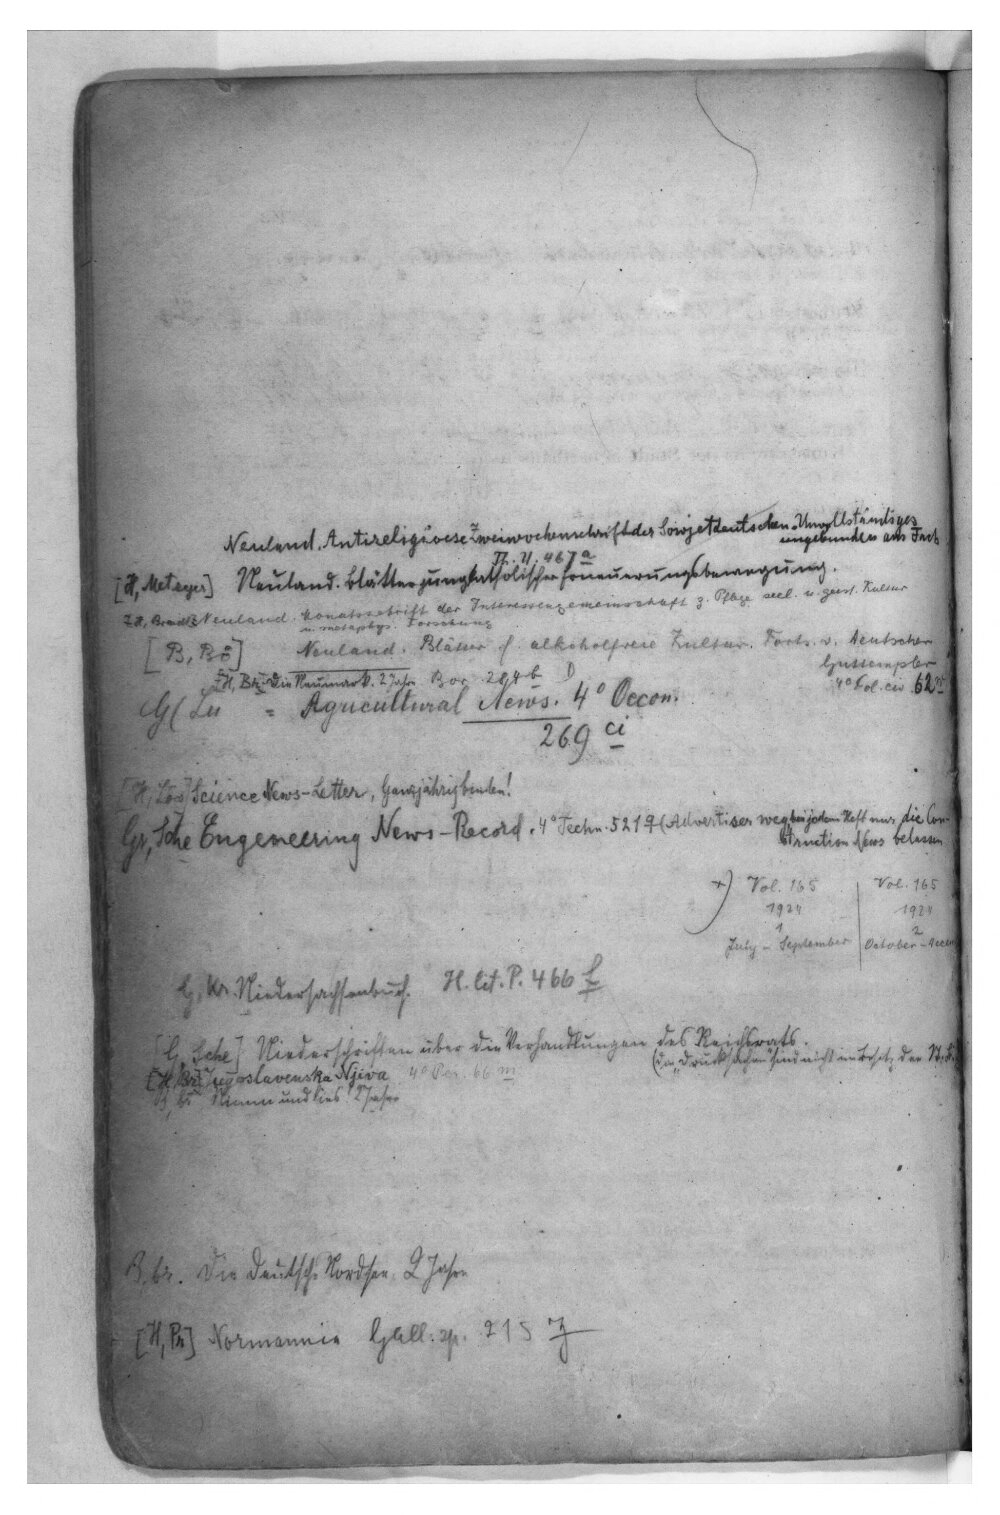 Neuland. Antireligiöese Zweiwochenschrift der Sowjetdeutschen. Unvollständiges
ungebunden ans Fach
Π. Y. 467 a
[H, Metzger] Neuland. Blätter jungkatholischer Erneuerungsbewegung.
ZH, Neuland. Monatsschrift der Interessengemeinschaft z. Pflege seel. u. geist. Kultur
u. metaphys. Forschung
[B, Bö] Neuland. Blätter f. alkoholfreie Kultur. Forts. v. Deutscher
Guttempler
4° Pol. civ 62
[H, Br] Die Neumark. 2 Jahre Bor. 284 b D
G( Lu = Agricultural News. 4° Oecon.
269 ci
[H, Lös] Science News-Letter, Ganzjährig binden!
Gr, Sche Engeneering News-Record. 4° Techn. 5219 (Advertiser weg, bei jedem Heft nur die Con-
struction News belassen
+) Vol. 165 Vol. 165
1924 1924
1 2
July - September October - Decem
G, Kr. Niedersachsenbuch. H. lit. P. 466 f
[G, Sche] Niederschriften über die Verhandlungen des Reichsrats.
(die "Drucksachen" sind nicht im Besitz der St. B.
[H, Br] Jugoslavenska Njiva 4° Per. 66 m
B, br Nimm und lies! 2 Jahre
B, br. Die Deutsche Nordsee, 2 Jahre
[H, Pr] Normannia Gall. sp. 215 z